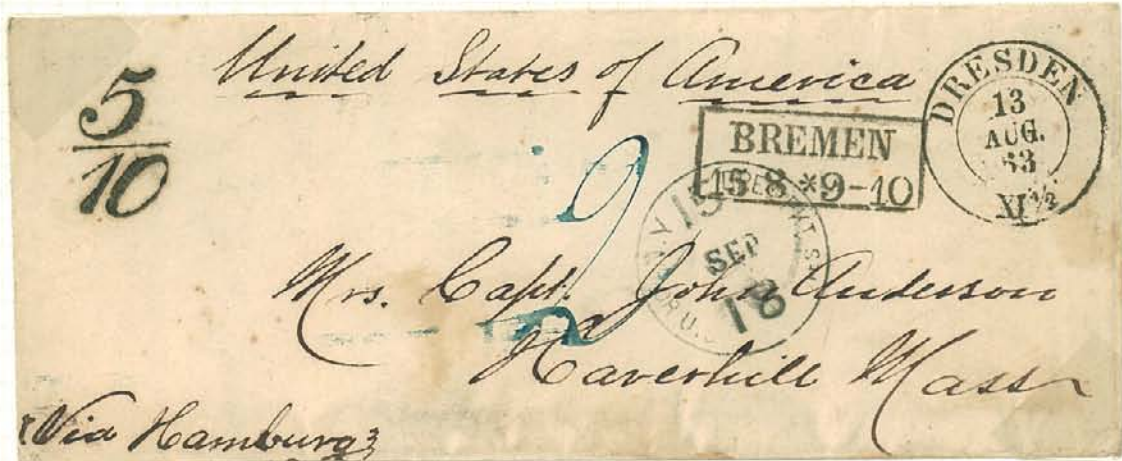 United States of America
5
10
DRESDEN
13
AUG.
63
XI½
BREMEN
15 8 * 9-10
N.Y.
15
SEP
18
U.S.
2
Mrs. Capt. John Anderson
Haverhill Mass
Via Hamburg